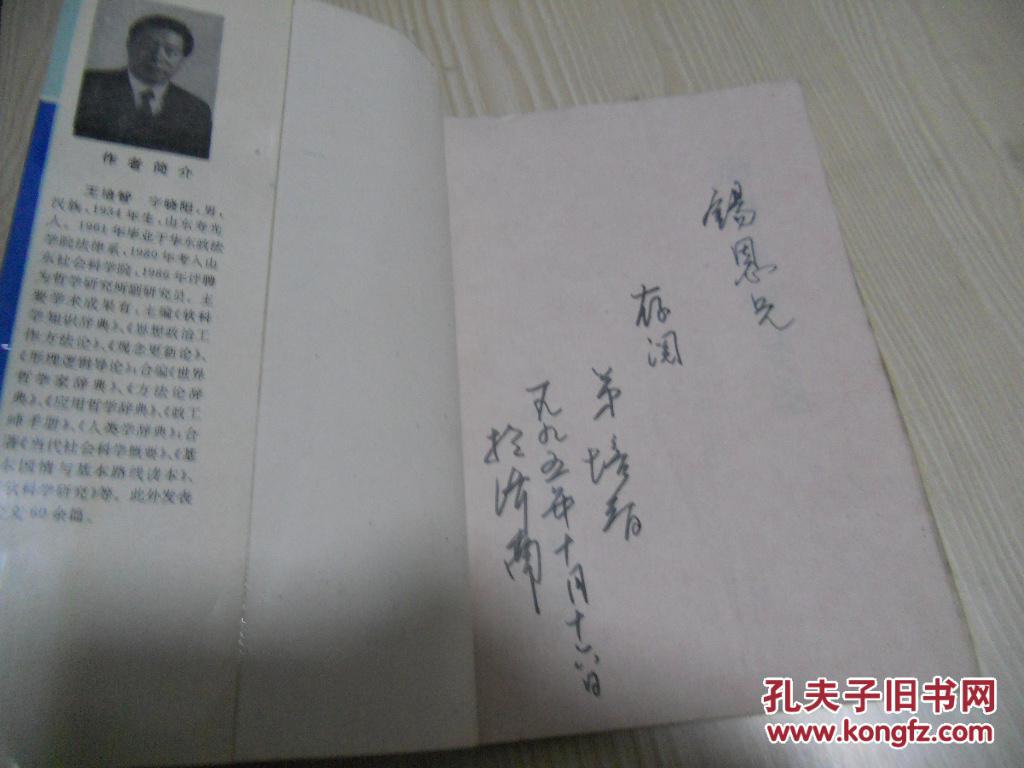 作者简介
王培智 字晓阳,男,
汉族,1934年生,山东寿光
人。1961年毕业于华东政法
学院法律系,1980年考入山
东社会科学院,1986年评聘
为哲学研究所副研究员。主
要学术成果有:主编《软科
学知识辞典》、《思想政治工
作方法论》、《观念更新论》、
《形
逻辑导论》;合编《世界
哲学家辞典》、《方法论辞
典》、《应用哲学辞典》、《政工
师手册》、《人类学辞典》;合
著《当代社会科学概要》、《基
本国情与基本路线读本》、
《软科学研究》等。此外发表
论文60余篇。
錫恩兄
存阅
弟 培智
一九九五年十月十六日
於济南
孔夫子旧书网
www.kongfz.com